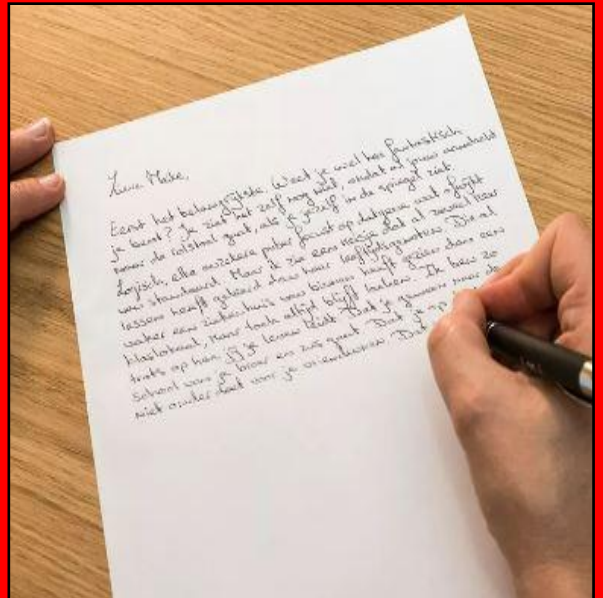 Lieve Meke,
Eerst het belangrijkste. Weet je wel hoe fantastisch
je bent? Je ziet het zelf nog niet, omdat al jouw aandacht
naar de rolstoel gaat, als je jezelf in de spiegel ziet.
Logisch, elke onzekere puber focust op datgene wat afwijkt
van standaard. Maar ik zie een meisje dat al zoveel
lessen heeft geleerd dan haar leeftijdsgenoten. Die al
vaker een ziekenhuis van binnen heeft gezien dan een
klaslokaal, maar toch altijd blijft lachen. Ik ben zo
trots op hoe jij je leven leidt. Dat je gewoon naar de
school van je broer en zus gaat. Dat je op
niet onder doet voor je vrienden. Dat je